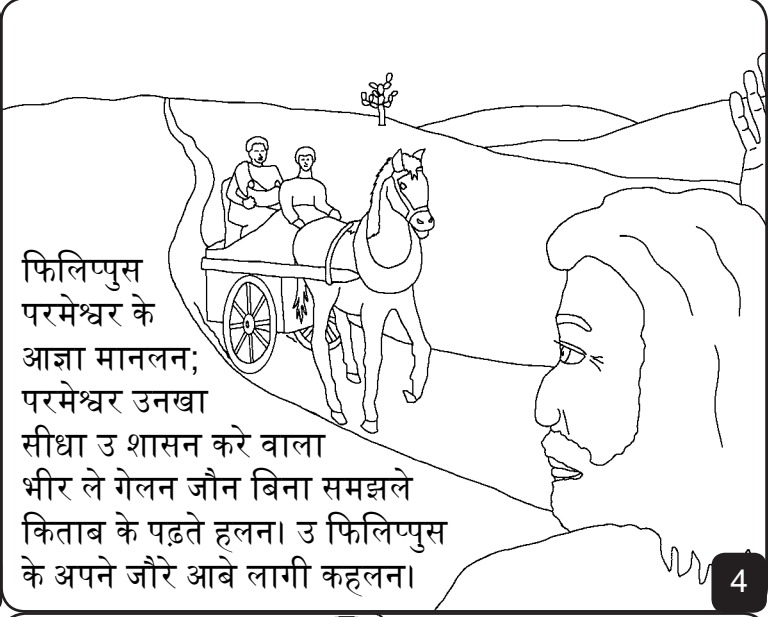 फिलिप्पुस
परमेश्वर के
आज्ञा मानलन;
परमेश्वर उनखा
सीधा उ शासन करे वाला
भीर ले गेलन जौन बिना समझले
किताब के पढ़ते हलन। उ फिलिप्पुस
के अपने जौरे आबे लागी कहलन।
4